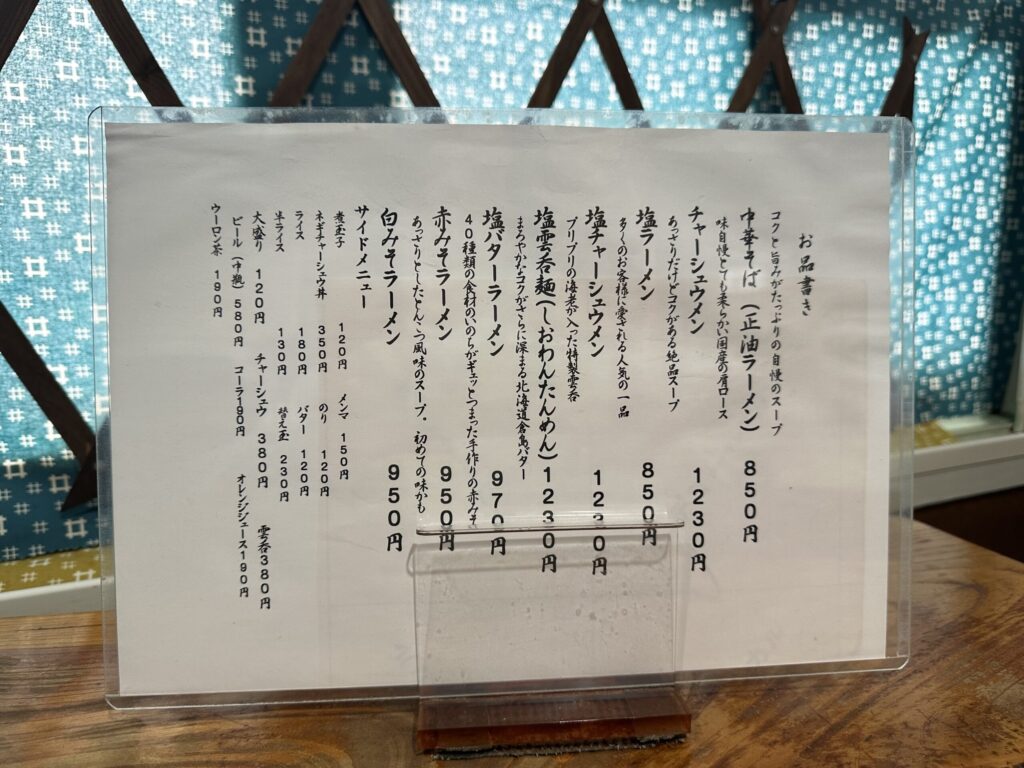 お品書き
コクと旨みがたっぷりの自慢のスープ
中華そば（正油ラーメン）850円
味自慢とても柔らかい国産の肩ロース
チャーシュウメン 1230円
あっさりだけどコクがある絶品スープ
塩ラーメン 850円
多くのお客様に愛される人気の一品
塩チャーシュウメン 1230円
プリプリの海老が入った特製雲呑
塩雲呑麺(しおわんたんめん) 1230円
まろやかなコクがさらに深まる北海道倉島バター
塩バターラーメン 970円
40種類の食材のいのちがギュッとつまった手作りの赤みそ
赤みそラーメン 950円
あっさりとしたとんこつ風味のスープ。初めての味かも
白みそラーメン 950円
サイドメニュー
煮玉子 120円 メンマ 150円
ネギチャーシュウ丼 350円 のり 120円
ライス 180円 バター 120円
半ライス 130円 替え玉 230円
大盛り 120円 チャーシュウ 380円 雲呑380円
ビール（中瓶）580円 コーラ190円 オレンジジュース190円
ウーロン茶 190円